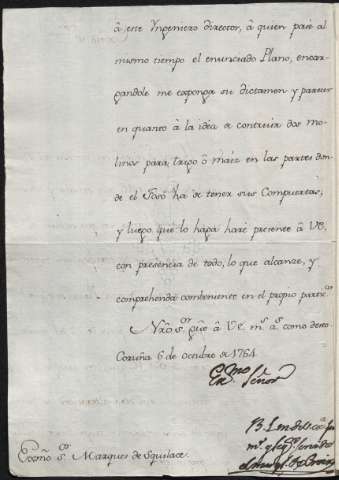 â este Ingeniero director, â quien pasè al
mismo tiempo el enunciado Plano, encar-
gandole me exponga su dictamen y parecer
en quanto à la idea de contruir dos mo-
linos para trigo ô maiz en las partes don-
de el foso ha de tener sus Compuertas;
y luego que lo haga harè presente â VE,
con presencia de todo, lo que alcanze, y
comprehenda combeniente en el propio partic.ar
Nrô S.or gûe â V.E. m.s a.s como deseo
Coruña 6 de octubre de 1764
Ex.mo Señor
B. L. m de V.E. su
m.r y seg.o servidor
Exc̃mo S.or Marques de Squilace.